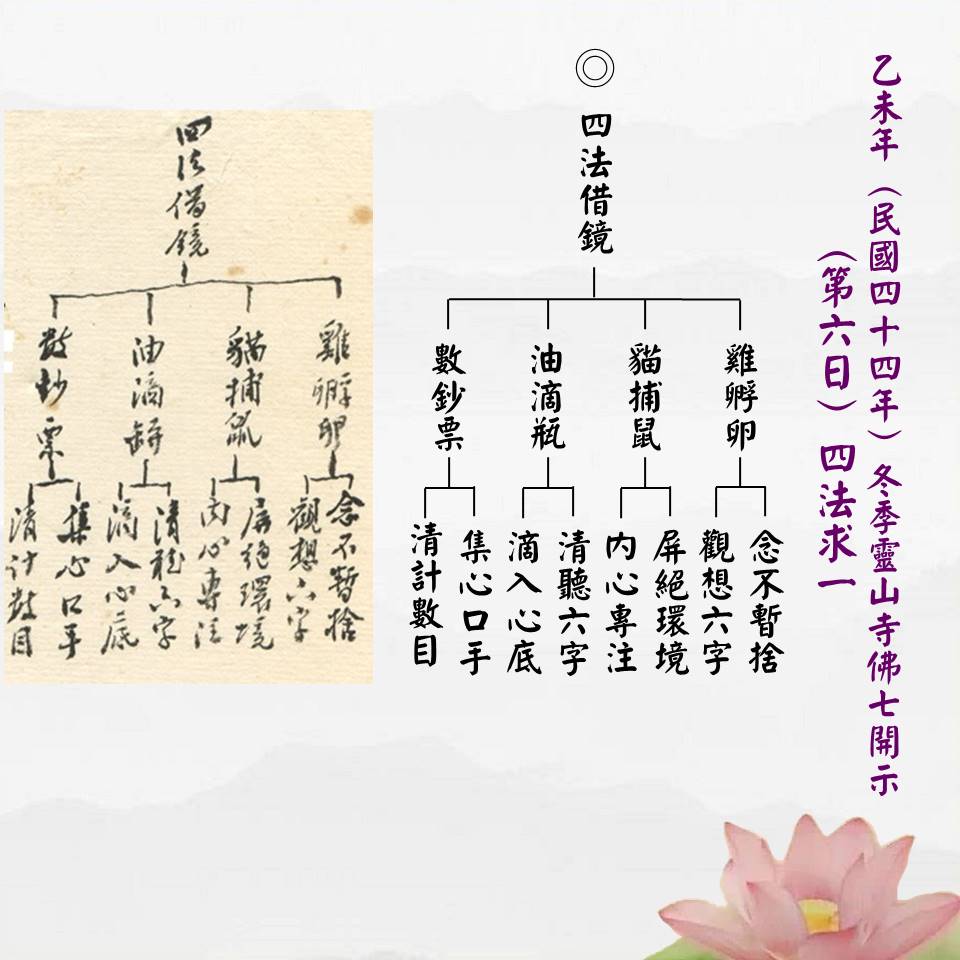 乙未年（民國四十四年）冬季靈山寺佛七開示
（第六日）四法求一
◎四法借鏡
雞孵卵
念不暫捨
觀想六字
貓捕鼠
屏絕環境
內心專注
油滴瓶
清聽六字
滴入心底
數鈔票
集心口手
清計數目
四法借鏡
雞孵卵
念不暫捨
觀想六字
貓捕鼠
屏絕環境
內心專注
油滴缾
清聽六字
滴入心底
數鈔票
集心口手
清計數目